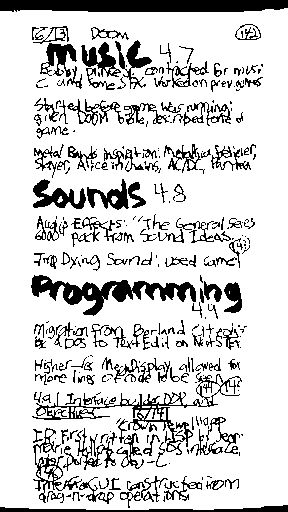 6/13 DOOM 142
music 4.7
Bobby Prince: contracted for musi
c and some SFX. Worked on prev games
Started before game was running;
given DOOM bible, described tone of
game.
Metal Bands inspiration: Metallica,
Slayer, Alice in chains, AC/DC, Pantera
Sounds 4.8
Audio Effects: "The General Series
6000" pack from Sound Ideas.
Imp Dying Sound: used camel
Programming
4.9
Migration from Borland C++ edit
DOS to TextEdit on NeXTSTEP
Higher-res MegaDisplay allowed for
more lines of code to be
4.9.1 Interface builder, DDP, and
Objectives 6/14
IB First written in LISP by Jean
Marie Hullot called SOS interface,
later ported to Obj-C
Interface GUI constructed from
drag-n-drop operations